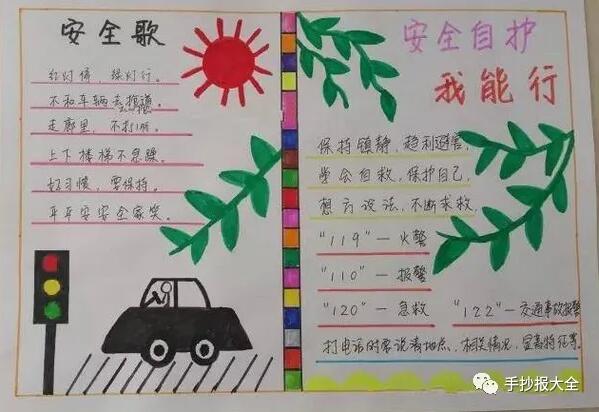 安全歌
红灯停，绿灯行。
不和车辆去抢道。
走廊里，不打闹。
上下楼梯不急躁。
好习惯，要保持。
平平安安全家笑。
安全自护
我能行
保持镇静，趋利避害，
学会自救，保护自己，
想方设法，不断求救，
"119"—火警
"110"—报警
"120"—急救 "122"—交通事故报警
打电话时要说清地点、相关情况，显著特征等。
手抄报大全